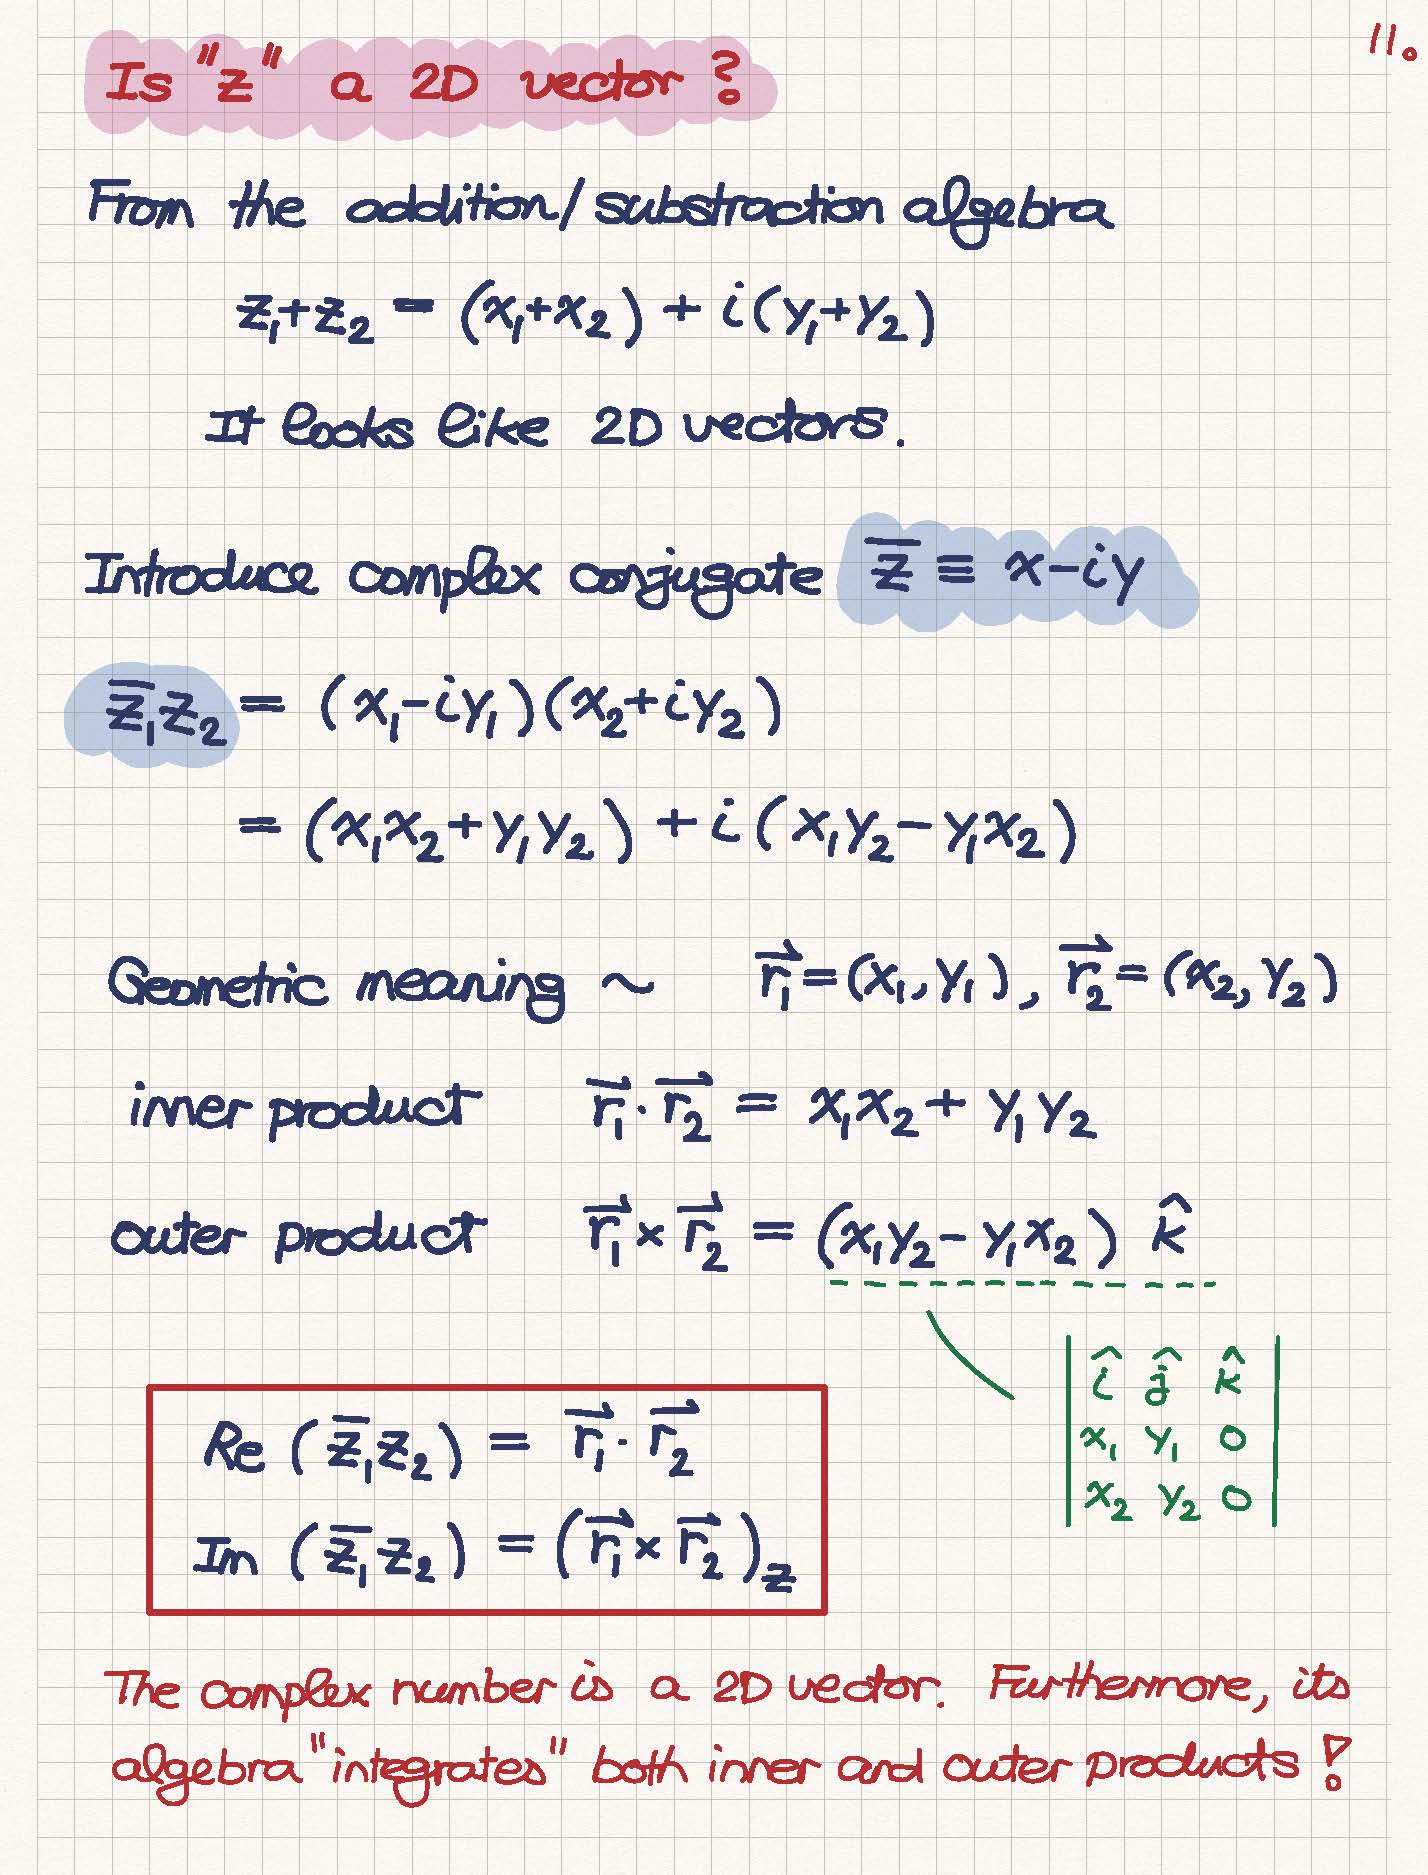 11.
Is "z" a 2D vector?
From the addition/substraction algebra
z₁+z₂ = (x₁+x₂) + i(y₁+y₂)
It looks like 2D vectors.
Introduce complex conjugate z̅ ≡ x-iy
z̅₁z₂ = (x₁-iy₁)(x₂+iy₂)
= (x₁x₂+y₁y₂) + i(x₁y₂-y₁x₂)
Geometric meaning ~ r⃗₁=(x₁,y₁), r⃗₂=(x₂,y₂)
inner product r⃗₁·r⃗₂ = x₁x₂+y₁y₂
outer product r⃗₁×r⃗₂ = (x₁y₂-y₁x₂) k̂
î ĵ k̂
x₁ y₁ 0
x₂ y₂ 0
Re (z̅₁z₂) = r⃗₁·r⃗₂
Im (z̅₁z₂) = (r⃗₁×r⃗₂)z
The complex number is a 2D vector. Furthermore, its
algebra "integrates" both inner and outer products!